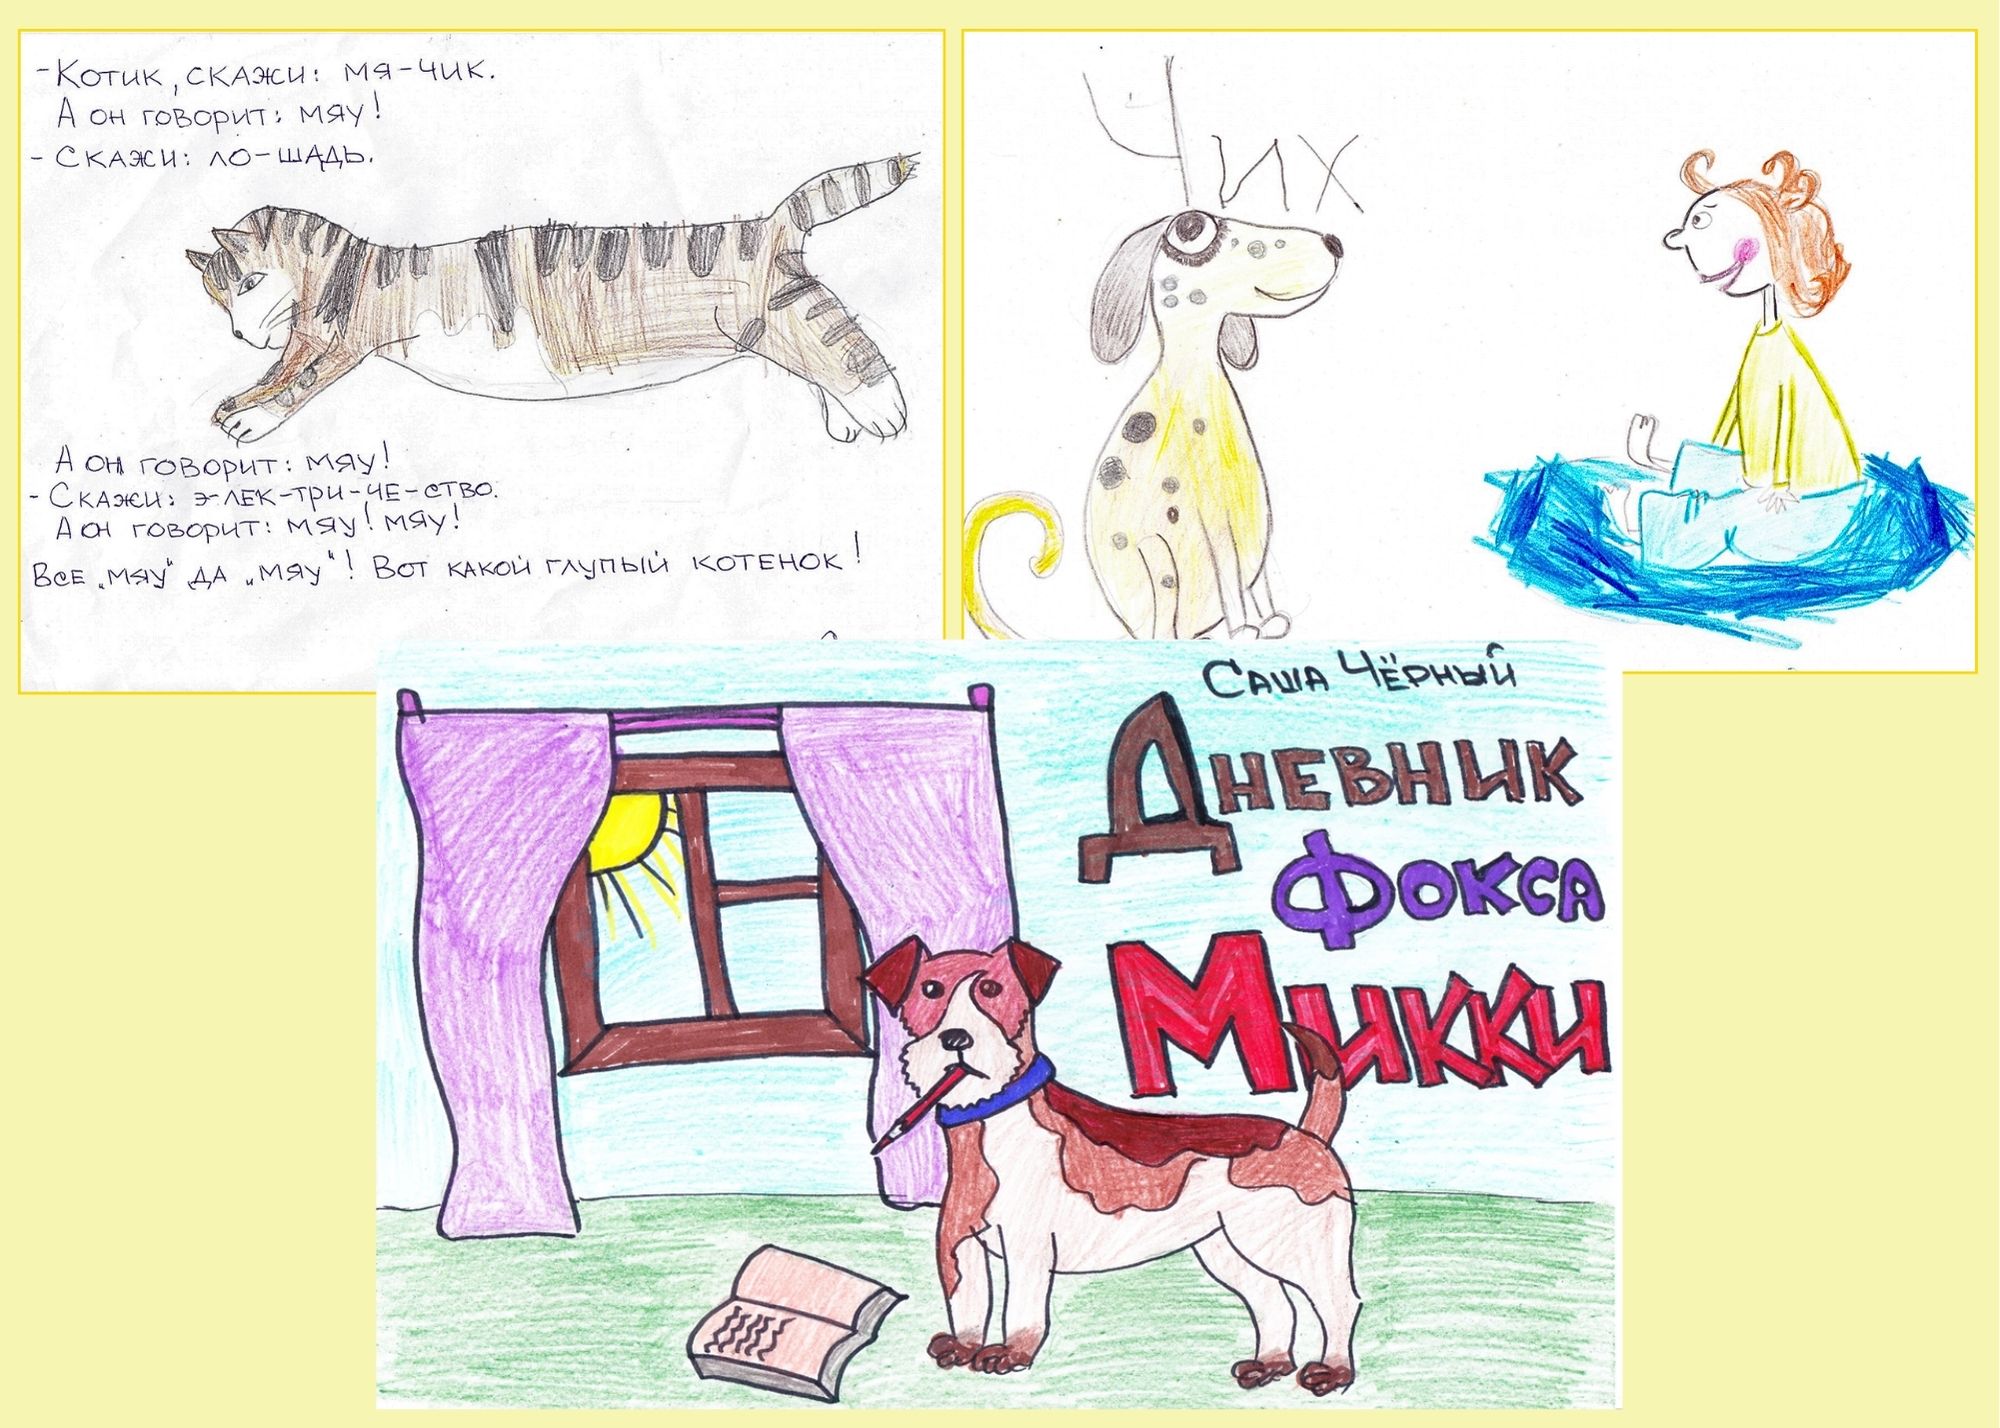 - Котик, скажи: мя-чик.
А он говорит: мяу!
- Скажи: ло-шадь.
А он говорит: мяу!
- Скажи: э-лек-три-че-ство.
А он говорит: мяу! мяу!
Все „мяу" да „мяу"! Вот какой глупый котенок!
Чих
Саша Чёрный
Дневник
Фокса
Микки